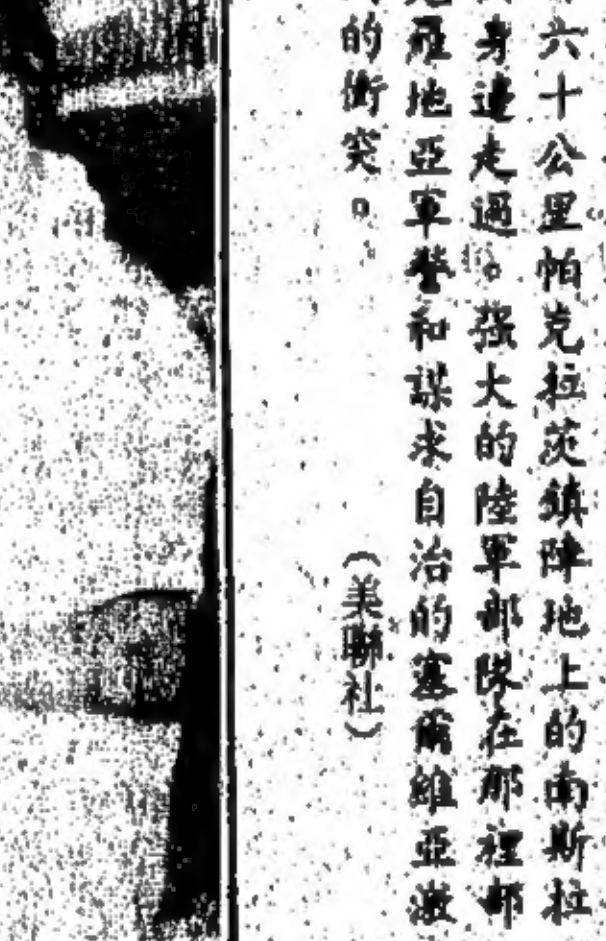 六十公里帕克拉茨鎮陣地上的南斯拉
身邊走過。強大的陸軍部隊在那裡部
羅地亞軍營和謀求自治的塞爾維亞激
的衝突。
(美聯社)